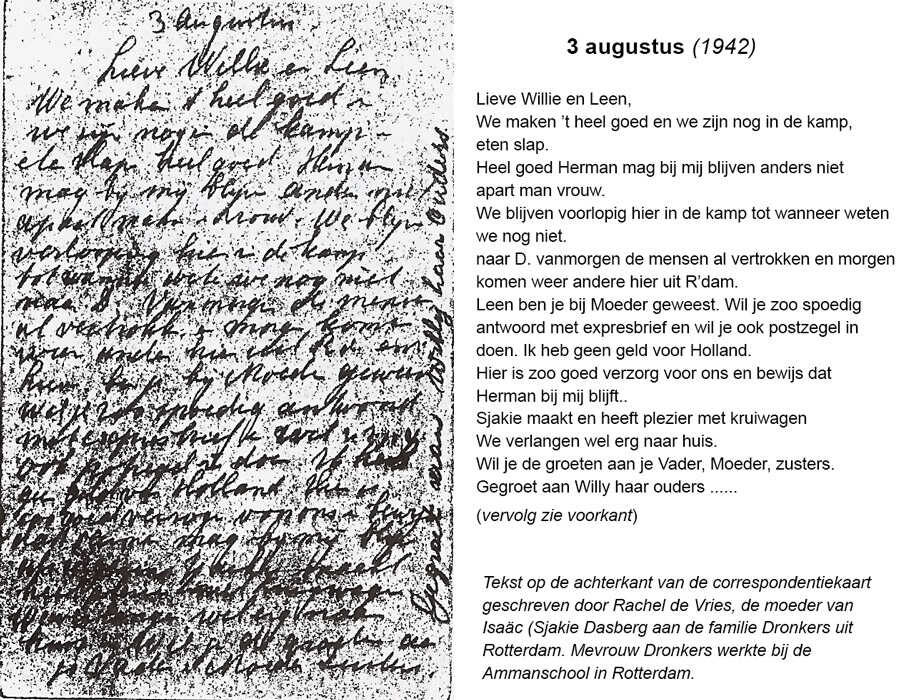 3 augustus
Lieve Willie en Leen
We make t heel goed
we zijn nog de kamp
ete slap heel goed Herman
mag by my blyv
apart man vrouw. We blyv
hier i de kamp
tot wete we nog niet
naar D. de mense
al vertrokke morge kome
weer ander hier uit
Leen ben je by Moeder geweest
wil je zoo spoedig antwoord
met
ook doe Ik heb
geen geld Holland Hier is
zoo goed voor ons
dat mag by my
je de groeten aan
je Vader Moeder zusters.
Gegroet aan Willy haar ouders
3 augustus (1942)
Lieve Willie en Leen,
We maken ’t heel goed en we zijn nog in de kamp,
eten slap.
Heel goed Herman mag bij mij blijven anders niet
apart man vrouw.
We blijven voorlopig hier in de kamp tot wanneer weten
we nog niet.
naar D. vanmorgen de mensen al vertrokken en morgen
komen weer andere hier uit R’dam.
Leen ben je bij Moeder geweest. Wil je zoo spoedig
antwoord met expresbrief en wil je ook postzegel in
doen. Ik heb geen geld voor Holland.
Hier is zoo goed verzorg voor ons en bewijs dat
Herman bij mij blijft..
Sjakie maakt en heeft plezier met kruiwagen
We verlangen wel erg naar huis.
Wil je de groeten aan je Vader, Moeder, zusters.
Gegroet aan Willy haar ouders ......
(vervolg zie voorkant)
Tekst op de achterkant van de correspondentiekaart
geschreven door Rachel de Vries, de moeder van
Isaäc (Sjakie Dasberg aan de familie Dronkers uit
Rotterdam. Mevrouw Dronkers werkte bij de
Ammanschool in Rotterdam.